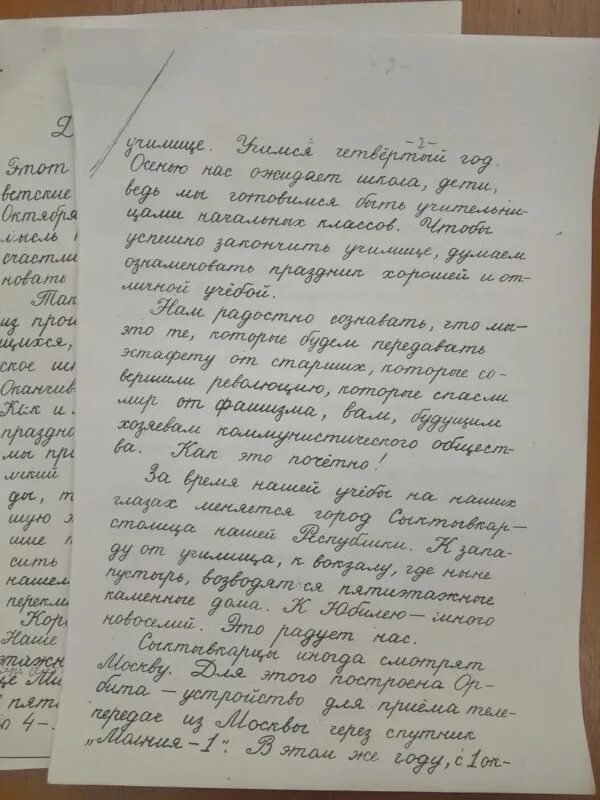 - 3 -
-2-
училище. Учимся четвёртый год.
Осенью нас ожидает школа, дети,
ведь мы готовимся быть учительни-
цами начальных классов. Чтобы
успешно закончить училище, думаем
ознаменовать праздник хорошей и от-
личной учёбой.
Нам радостно сознавать, что мы-
это те, которые будем передавать
эстафету от старших, которые со-
вершили революцию, которые спасли
мир от фашизма, вам, будущим
хозяевам коммунистического общест-
ва. Как это почётно!
За время нашей учёбы на наших
глазах меняется город Сыктывкар—
столица нашей Республики. К запа-
ду от училища, к вокзалу, где ныне
пустырь, возводятся пятиэтажные
каменные дома. К Юбилею — много
новоселий. Это радует нас.
Сыктывкарцы иногда смотрят
Москву. Для этого построена Ор-
бита — устройство для приёма теле-
передач из Москвы через спутник
„Молния-1". В этом же году, с 1 ок-
Этот
ветские
Октября
мысль
счастли
новать
Так
из прои
щихся,
ское
Оканчив
Как и
праздно
мы при
ды, т
шую э
шие
сить
нашем
перекли
Кор
Наше
этажн
пят
4-